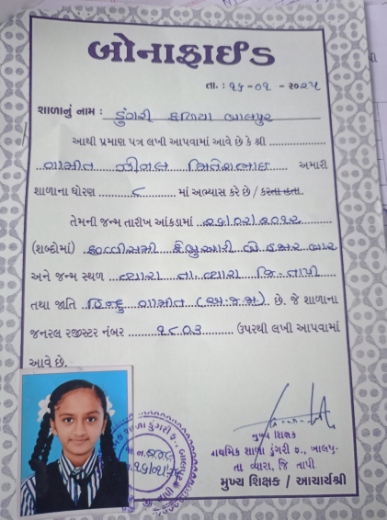 બોનાફાઈડ
તા. : ૧૬ -૦૧ - ૨૦૨૫
શાળાનું નામ : ડુંગરી ફળિયા બાલપુર
આથી પ્રમાણ પત્ર લખી આપવામાં આવે છે કે શ્રી ................
ગામીત ઝીનલ જિતેશભાઇ અમારી
શાળાના ધોરણ ....૮.... માં અભ્યાસ કરે છે / કરતા હતા.
તેમની જન્મ તારીખ આંકડામાં ..૨૧/૦૨/૨૦૧૨
(શબ્દોમાં) ફેબ્રુઆરી બે હજાર બાર
અને જન્મ સ્થળ વ્યારા તા. વ્યારા જિ. તાપી
તથા જાતિ હિન્દુ ગામીત (અ.જ.જા) છે. જે શાળાના
જનરલ રજીસ્ટર નંબર ....૧૮૦૩.... ઉપરથી લખી આપવામાં
આવે છે.
મુખ્ય શિક્ષક
પ્રાથમિક શાળા ડુંગરી ફ., બાલપુર
તા વ્યારા, જિ તાપી
મુખ્ય શિક્ષક / આચાર્યશ્રી